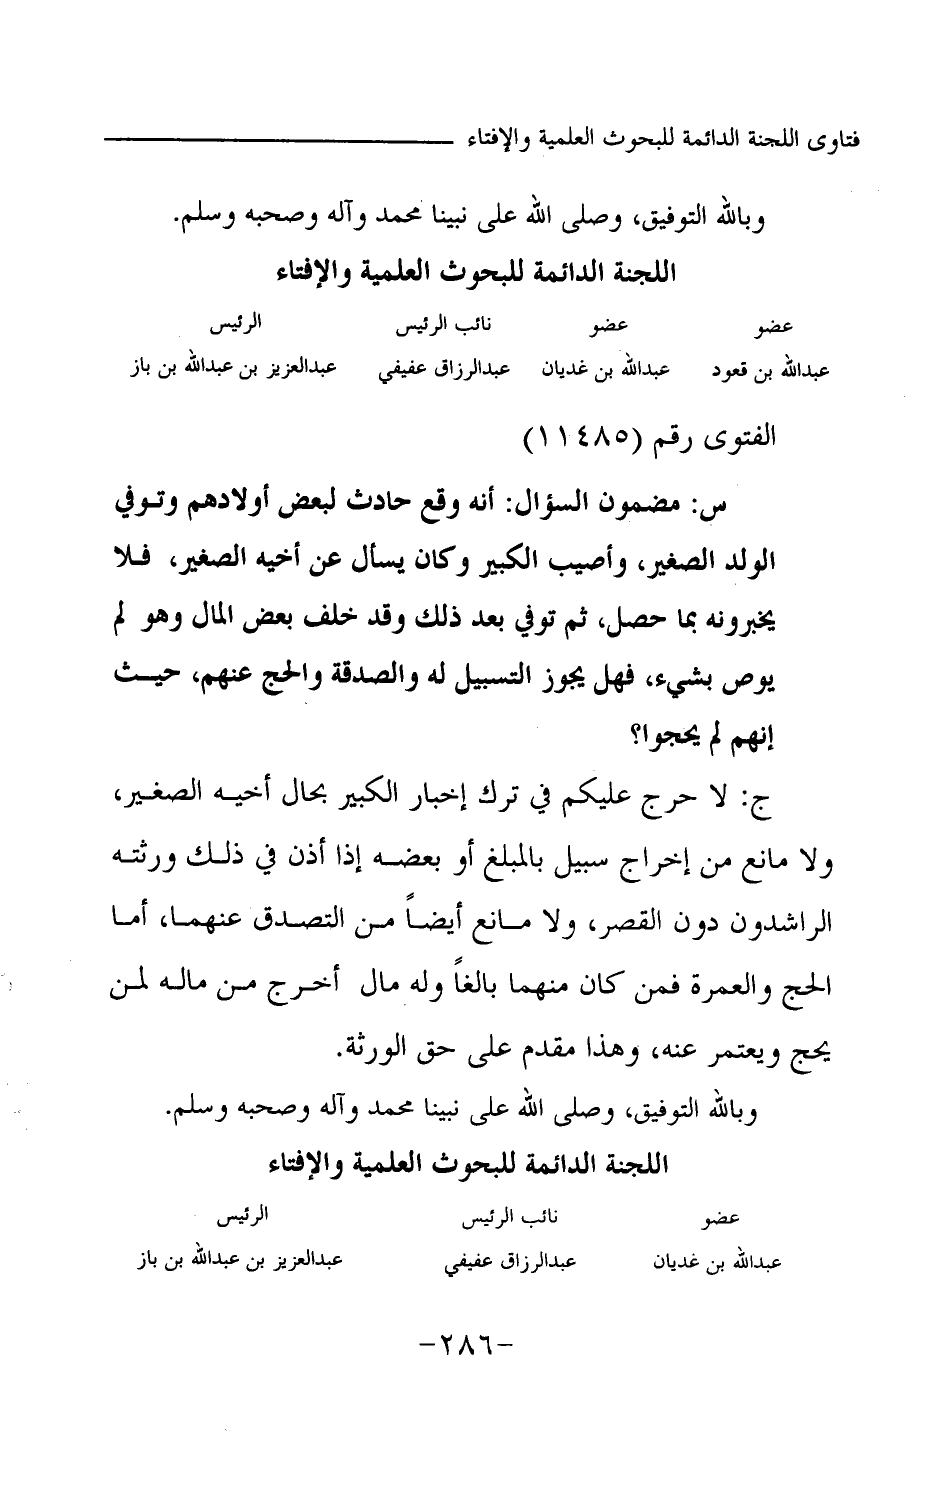 فتاوى اللجنة الدائمة للبحوث العلمية والإفتاء
وبالله التوفيق، وصلى الله على نبينا محمد وآله وصحبه وسلم.
اللجنة الدائمة للبحوث العلمية والإفتاء
عضو عضو نائب الرئيس الرئيس
عبدالله بن قعود عبدالله بن غديان عبدالرزاق عفيفي عبدالعزيز بن عبدالله بن باز
الفتوى رقم (١١٤٨٥)
س: مضمون السؤال: أنه وقع حادث لبعض أولادهم وتوفي
الولد الصغير، وأصيب الكبير وكان يسأل عن أخيه الصغير، فلا
يخبرونه بما حصل، ثم توفي بعد ذلك وقد خلف بعض المال وهو لم
يوص بشيء، فهل يجوز التسبيل له والصدقة والحج عنهم، حيث
إنهم لم يحجوا؟
ج: لا حرج عليكم في ترك إخبار الكبير بحال أخيه الصغير،
ولا مانع من إخراج سبيل بالمبلغ أو بعضه إذا أذن في ذلك ورثته
الراشدون دون القصر، ولا مانع أيضاً من التصدق عنهما، أما
الحج والعمرة فمن كان منهما بالغاً وله مال أخرج من ماله لمن
يحج ويعتمر عنه، وهذا مقدم على حق الورثة.
وبالله التوفيق، وصلى الله على نبينا محمد وآله وصحبه وسلم.
اللجنة الدائمة للبحوث العلمية والإفتاء
عضو نائب الرئيس الرئيس
عبدالله بن غديان عبدالرزاق عفيفي عبدالعزيز بن عبدالله بن باز
-٢٨٦-